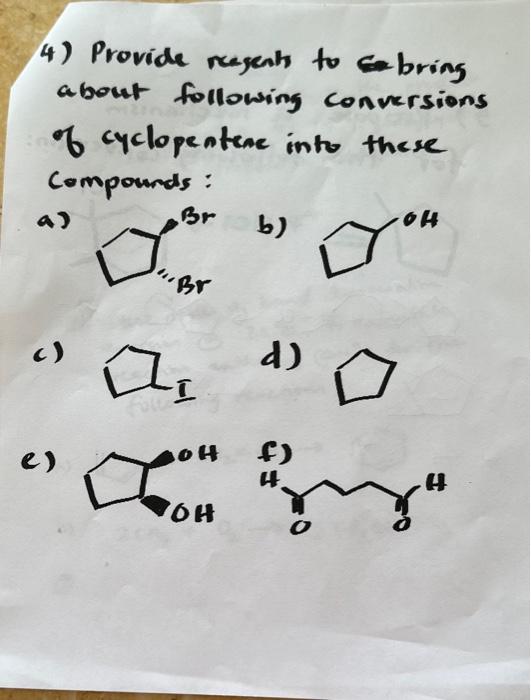 4) Provide reagents to bring
about following conversions
of cyclopentene into these
Compounds :
a) Br b) OH
Br
c) I d)
e) OH f) H H
OH O O